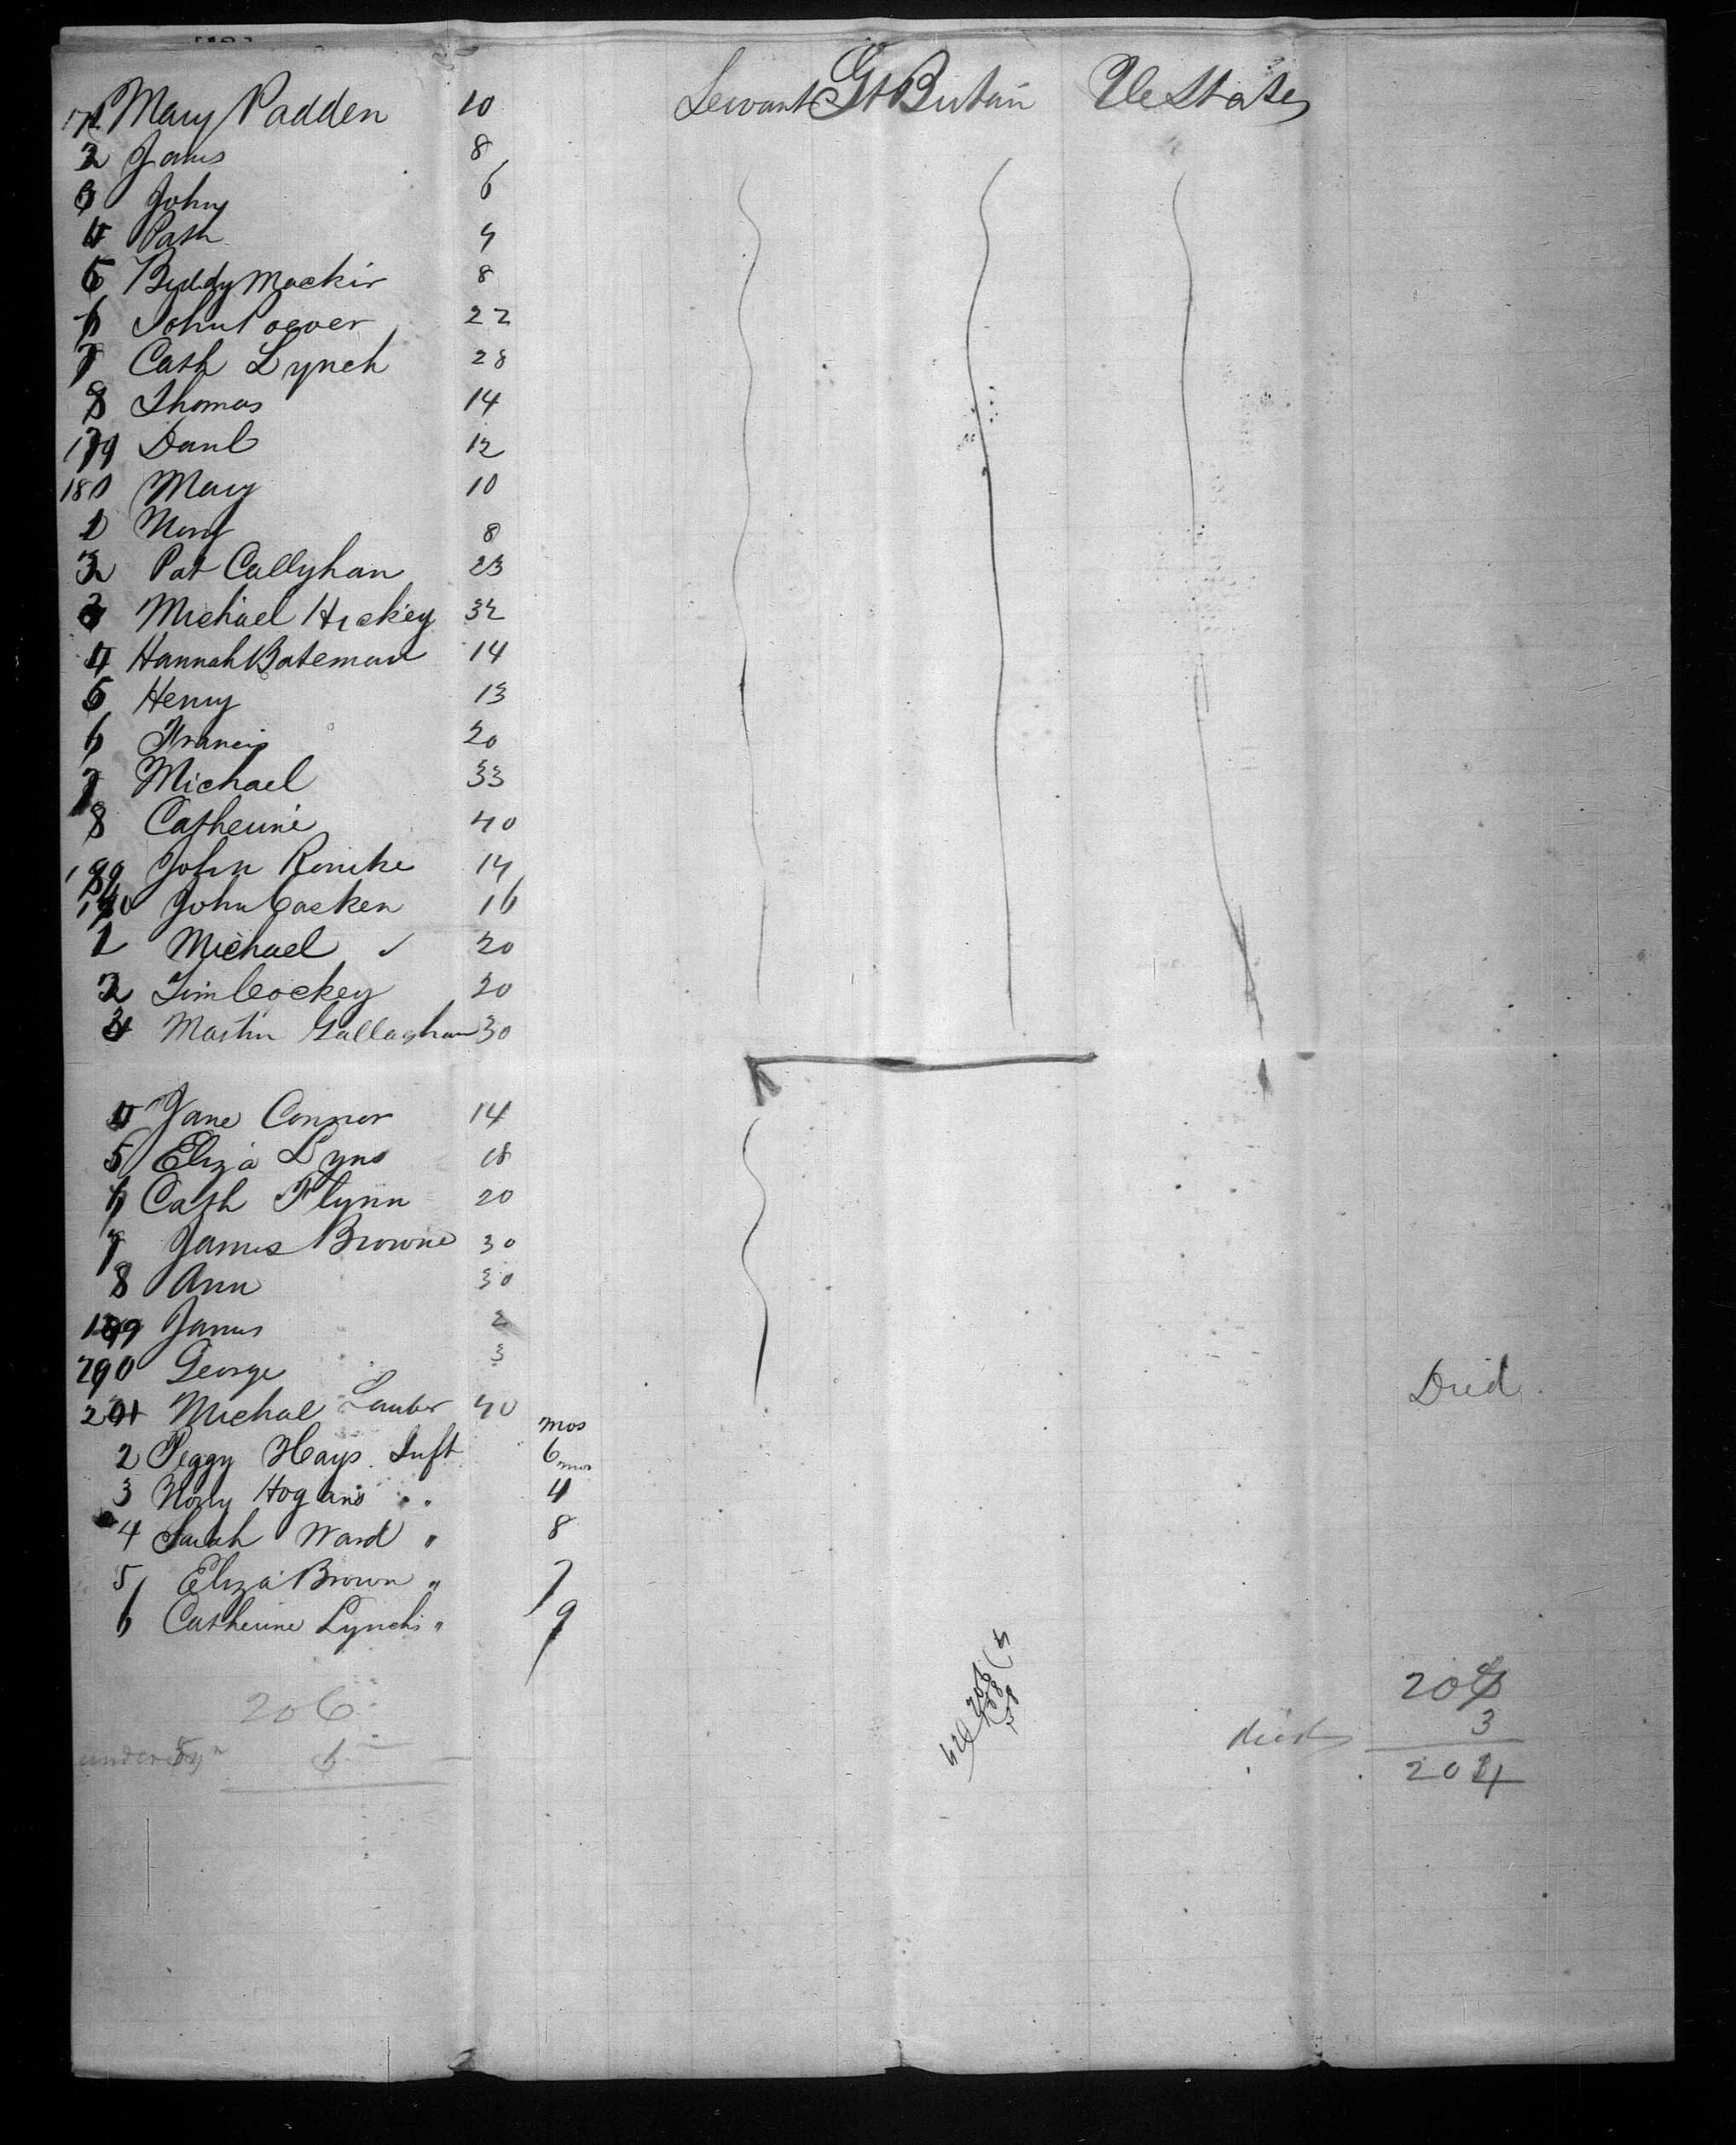 171 Mary Padden 10 Servant Gt Britain Ue States
2 James 8
3 John 6
4 Path 4
5 Biddy Mackin 8
6 John Power 22
7 Cath Lynch 28
8 Thomas 14
179 Danl 12
180 Mary 10
1 Nory 8
2 Pat Callyhan 23
3 Michael Hickey 32
4 Hannah Bateman 14
5 Henry 13
6 Francis 20
7 Michael 33
8 Catherine 40
189 John 14
190 John Casken 16
1 Michael 20
2 Tim Cockey 20
3 Martin Gallaghan 30
4 Jane Connor 14
5 Eliza Lyns 18
6 Cath Flynn 20
7 James Browne 30
8 Ann 30
199 James 2
200 George 3
201 Michal 40 Died
mos
2 Peggy Hays Inft 6 mos
3 Nory Hogans " 4
4 Sarah Ward " 8
5 Eliza Brown " 7
6 Catherine Lynch " 9
206
under 6
206
died 3
204